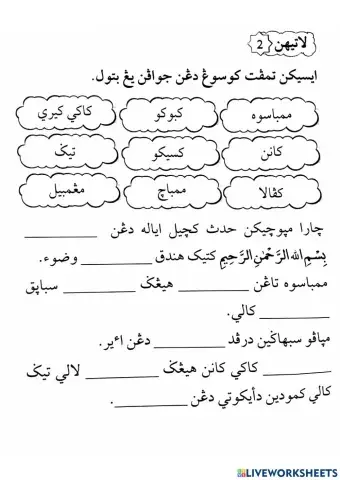 لاتيهن 2
ايسيكن تمڤت كوسوڠ دڠن جواڤن يڠ بتول.
ممباسوه كبوكو كاكي كيري
كانن كسيكو تيݢ
كڤالا ممباچ مڠمبيل
چارا مپوچيكن حدث كچيل اياله دڠن ________
بِسْمِ اللهِ الرَّحْمٰنِ الرَّحِيمِ كتيك هندق ________ وضوء.
ممباسوه تاڠن ________ هيڠݢ ________ سباپق
________ كالي.
مپاڤو سبهاݢين درڤد ________ دڠن اءير.
________ كاكي كانن هيڠݢ ________ لالي تيݢ
كالي كمودين دأيكوتي دڠن ________.
LIVEWORKSHEETS